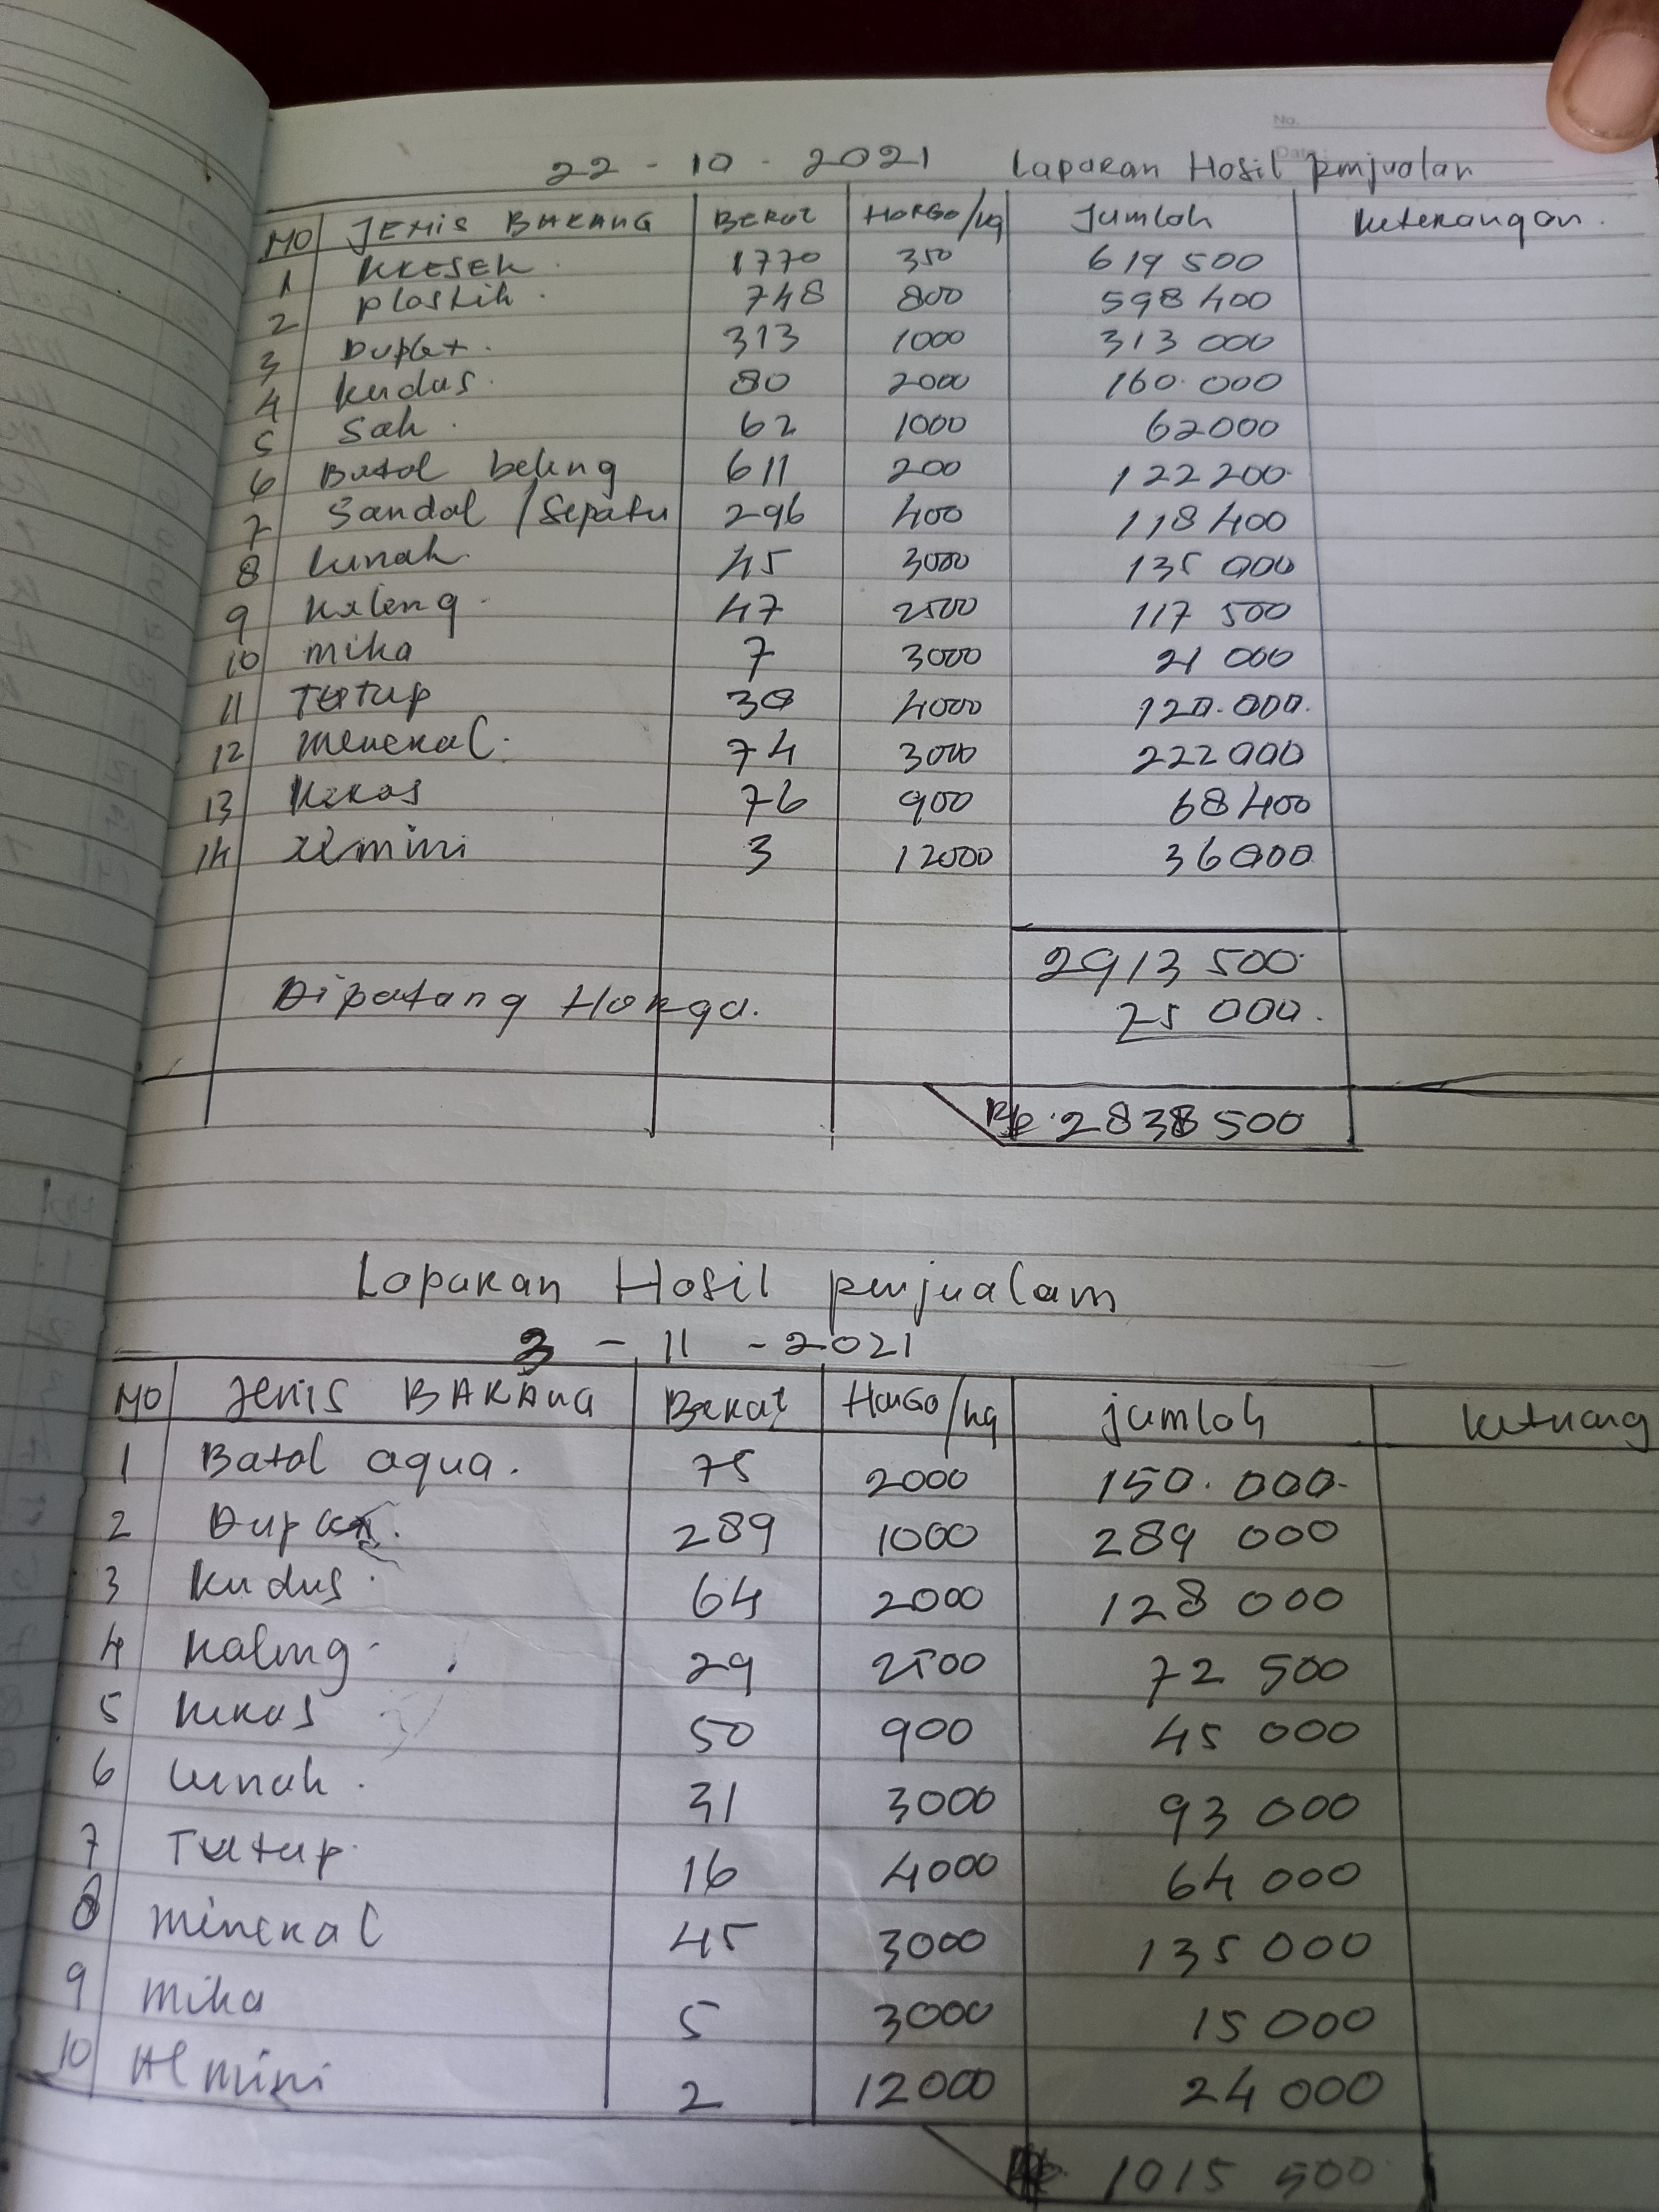 No.
Date
22 - 10 - 2021 Lapuran Hosil penjualan
NO JENIS BARANG BERAT HARGO/kg Jumlah keterangan.
1 KRESEK. 1770 350 619 500
2 plastik. 748 800 598 400
3 Duplet. 313 1000 313 000
4 kudus. 80 2000 160.000
5 Sak. 62 1000 62000
6 Batol beling 611 200 122 200
7 Sandal / Sepatu 296 400 118 400
8 lunak. 45 3000 135 000
9 Kaleng. 47 2500 117 500
10 mika 7 3000 21 000
11 Tutup 30 4000 120.000.
12 meneral. 74 3000 222000
13 Keras 76 900 68400
14 Almini 3 12000 36000
2913 500
Dipatang Harga. 25 000.
Rp. 2838 500
Lapuran Hosil penjualam
3 - 11 - 2021
NO Jenis BARANG Berat HarGo/kg jumlah
1 Batol aqua. 75 2000 150.000-
2 289 1000 289 000
3 Kudus. 64 2000 128 000
4 Kaleng. 29 2500 72 500
5 Keras 50 900 45 000
6 lunak. 31 3000 93 000
7 Tutup. 16 4000 64 000
8 mineral 45 3000 135 000
9 mika 5 3000 15 000
10 Almini 2 12000 24 000
Rp. 1015 500